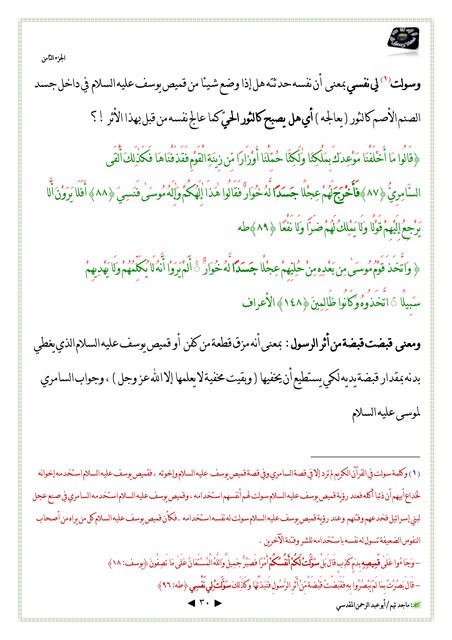 الجزء الثامن
وسولت (١) لي نفسي بمعنى أن نفسه حدثته هل إذا وضع شيئا من قميص يوسف عليه السلام في داخل جسد
الصنم الأصم كالثور ( يعالجه ) أي هل يصبح كالثور الحيّ كما عالج نفسه من قبل بهذا الأثر !؟
﴿قَالُوا مَا أَخْلَفْنَا مَوْعِدَكَ بِمَلْكِنَا وَلَكِنَّا حُمِّلْنَا أَوْزَارًا مِّن زِينَةِ الْقَوْمِ فَقَذَفْنَاهَا فَكَذَلِكَ أَلْقَى
السَّامِرِيُّ ﴿٨٧﴾ فَأَخْرَجَ لَهُمْ عِجْلًا جَسَدًا لَّهُ خُوَارٌ فَقَالُوا هَذَا إِلَهُكُمْ وَإِلَهُ مُوسَى فَنَسِيَ ﴿٨٨﴾ أَفَلَا يَرَوْنَ أَلَّا
يَرْجِعُ إِلَيْهِمْ قَوْلًا وَلَا يَمْلِكُ لَهُمْ ضَرًّا وَلَا نَفْعًا ﴿٨٩﴾ طه
﴿ وَاتَّخَذَ قَوْمُ مُوسَى مِن بَعْدِهِ مِنْ حُلِيِّهِمْ عِجْلًا جَسَدًا لَّهُ خُوَارٌ ۚ أَلَمْ يَرَوْا أَنَّهُ لَا يُكَلِّمُهُمْ وَلَا يَهْدِيهِمْ
سَبِيلًا ۘ اتَّخَذُوهُ وَكَانُوا ظَالِمِينَ ﴿١٤٨﴾ الأعراف
ومعنى قبضت قبضة من أثر الرسول : بمعنى أنه مزق قطعة من كفن أو قميص يوسف عليه السلام الذي يغطي
بدنه بمقدار قبضة يديه لكي يستطيع أن يخفيها ( وبقيت مخفية لا يعلمها إلا الله عز وجل ) ، وجواب السامري
لموسى عليه السلام
(١) وكلمة سولت في القرآن الكريم لم ترد إلا في قصة السامري وفي قصة قميص يوسف عليه السلام وإخوته ، فقميص يوسف عليه السلام استخدمه إخوانه
لخداع أبيهم أن ذئبا أكله فعند رؤية قميص يوسف عليه السلام سولت لهم أنفسهم استخدامه ، وقميص يوسف عليه السلام استخدمه السامري في صنع عجل
لبني إسرائيل فخدعهم وفتنهم وعند رؤية قميص يوسف عليه السلام سولت له نفسه استخدامه . فكأن قميص يوسف عليه السلام كل من يراه من أصحاب
النفوس الضعيفة تسول له نفسه باستخدامه للشر وفتنة الآخرين .
- وَجَاءُوا عَلَى قَمِيصِهِ بِدَمٍ كَذِبٍ قَالَ بَلْ سَوَّلَتْ لَكُمْ أَنْفُسُكُمْ أَمْرًا فَصَبْرٌ جَمِيلٌ وَاللَّهُ الْمُسْتَعَانُ عَلَى مَا تَصِفُونَ (يوسف: ١٨)
- قَالَ بَصُرْتُ بِمَا لَمْ يَبْصُرُوا بِهِ فَقَبَضْتُ قَبْضَةً مِنْ أَثَرِ الرَّسُولِ فَنَبَذْتُهَا وَكَذَلِكَ سَوَّلَتْ لِي نَفْسِي (طه: ٩٦)
ماجد تيم / أبو عبد الرحمن المقدسي
٣٠